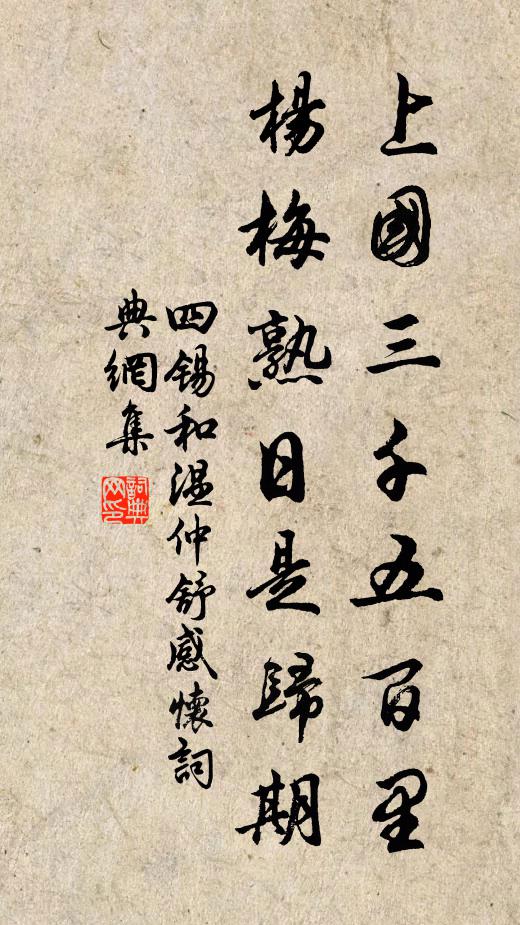 上國三千五百里
楊梅熟日是歸期
四錫和溫仲舒感懷詞
典網集
詞典網印